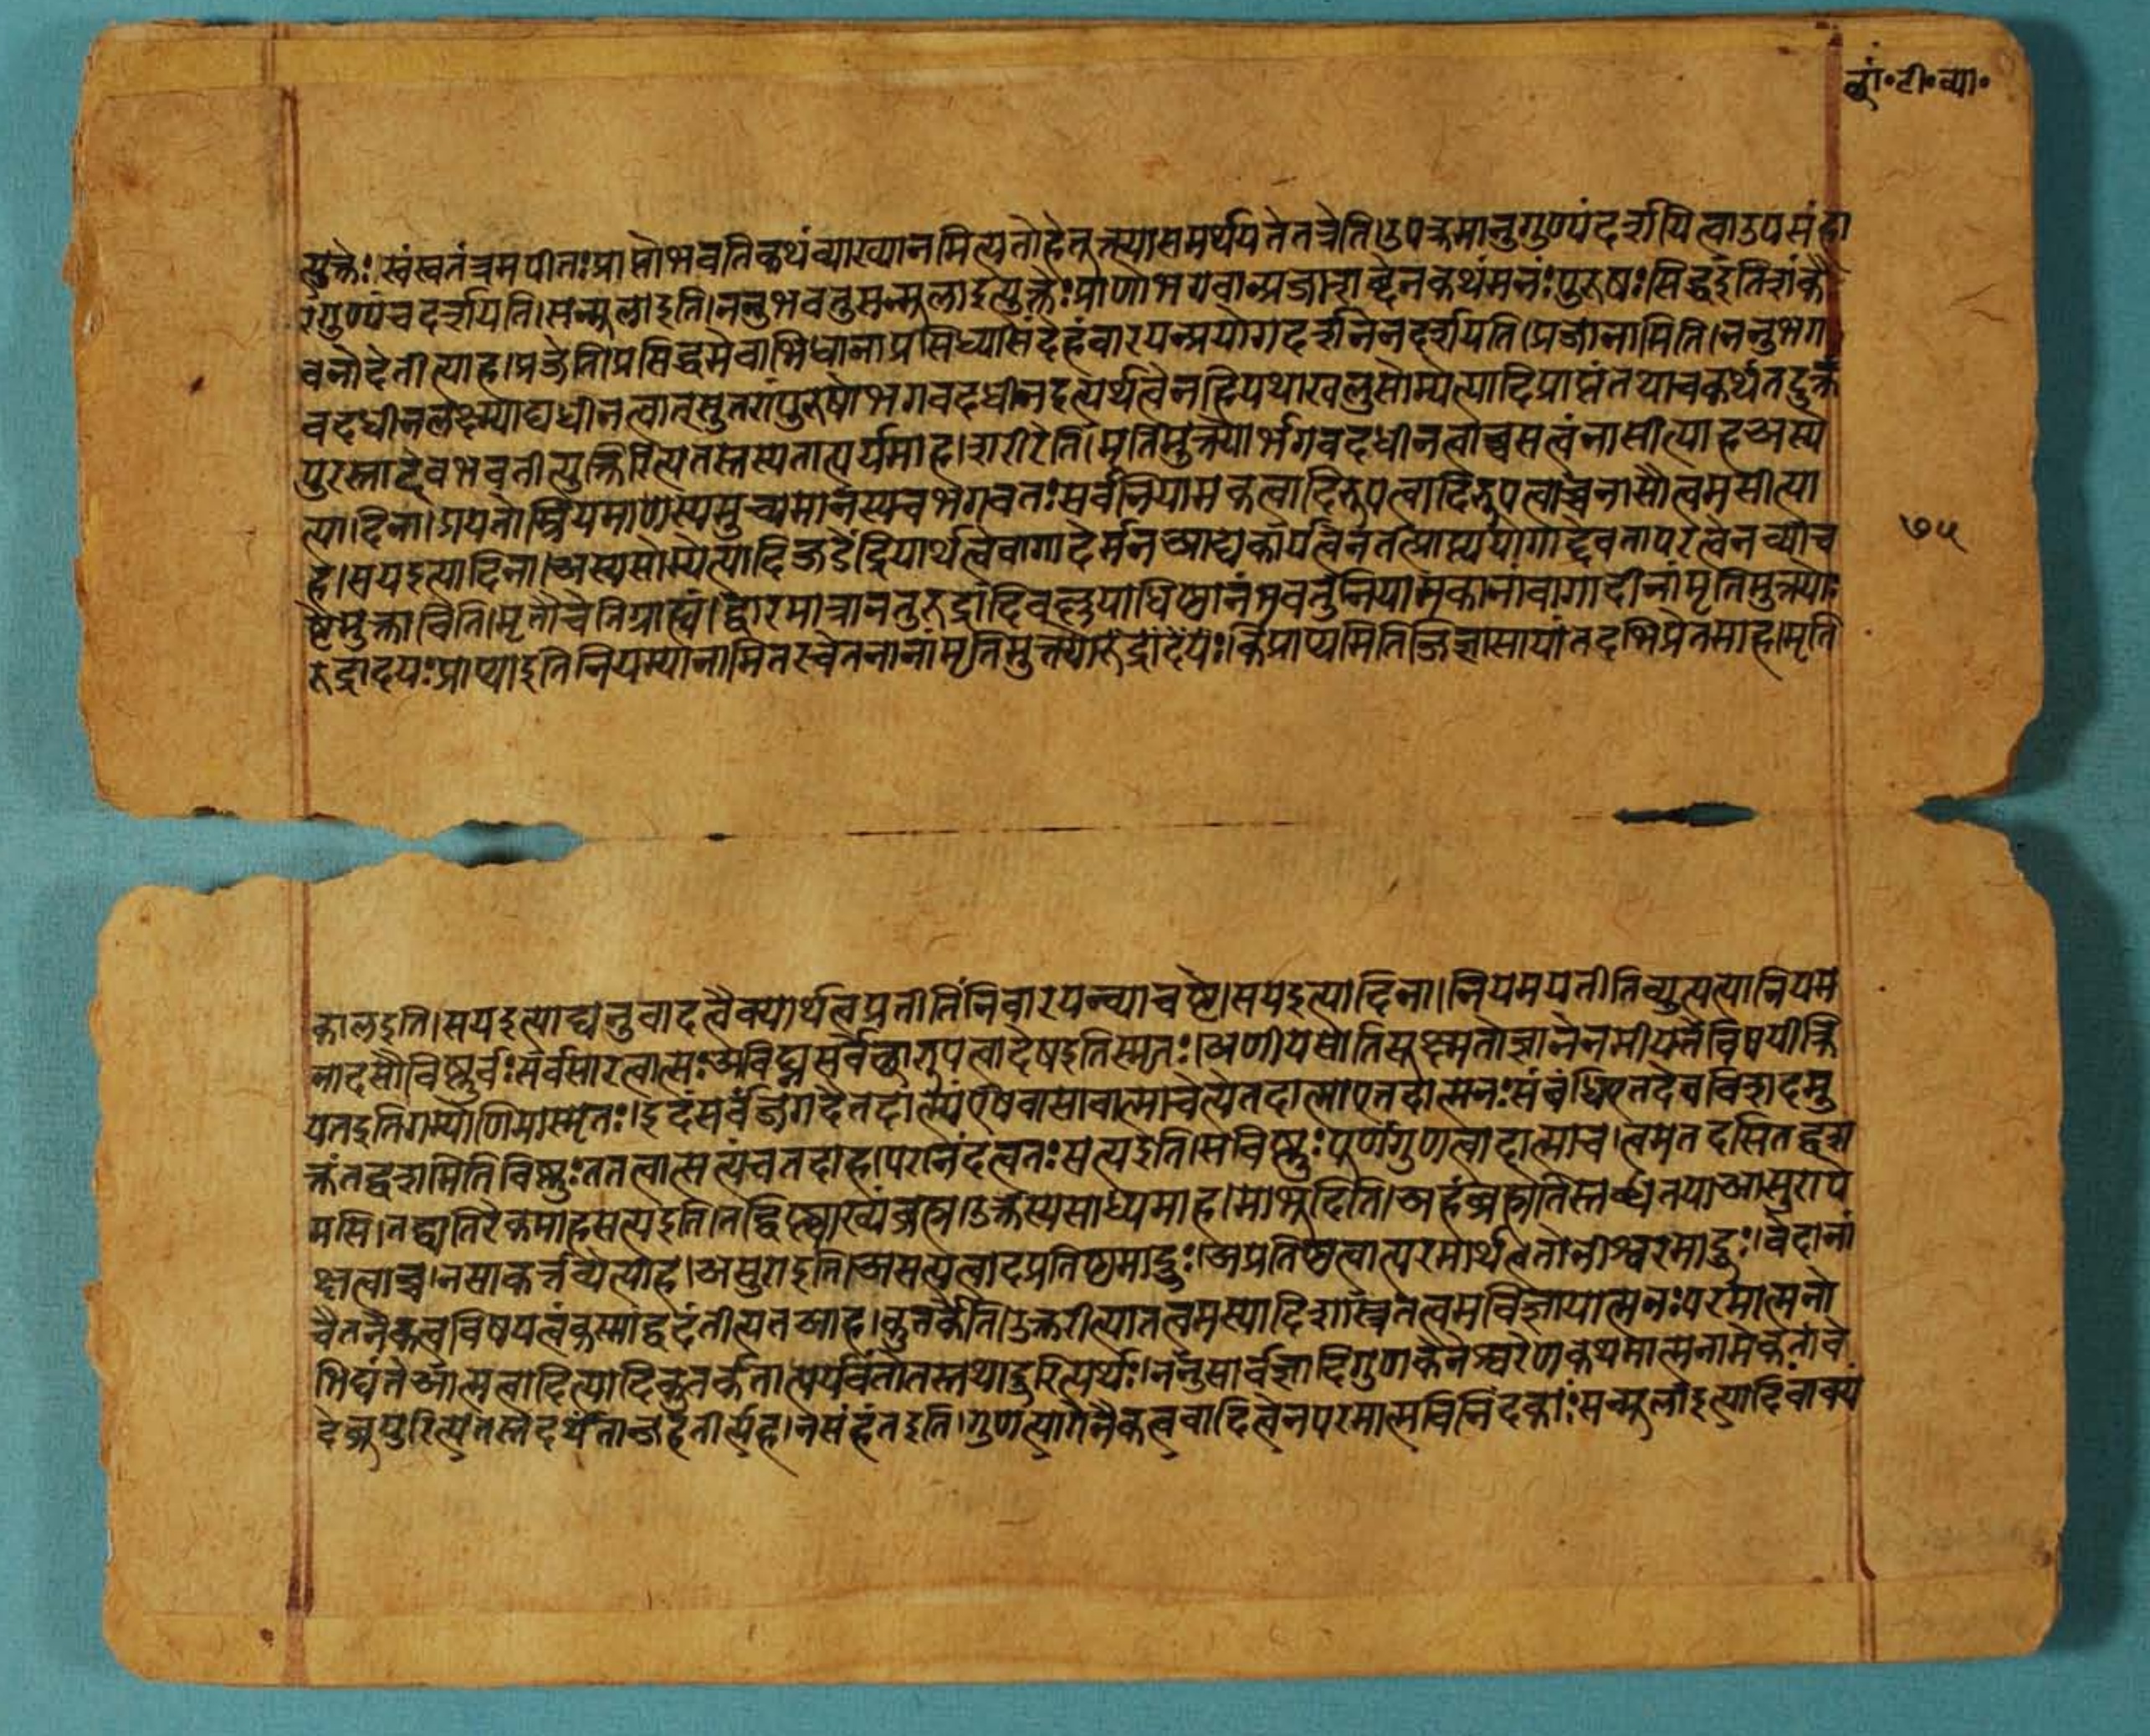 छां॰टी॰व्या॰
त्युक्तेः।स्वंस्वतंत्रमपीतःप्राप्तोभवतिकथंव्याख्यानमित्यतोहेतूक्त्यासमर्थयतेतत्रेति।उपक्रमानुगुण्यंदर्शयित्वाउपसंहा
रगुण्यंचदर्शयति।सन्मूलाइति।ननुभवतुसन्मूलाइत्युक्तेःप्राणोभगवान्प्रजाशब्देनकथंमनःपुरुषःसिद्धइतिशंकै
वनोदेतीत्याह।प्रजेति।प्रसिद्धमेवाभिधानाप्रसिध्यासंदेहंवारयन्प्रयोगदर्शनेनदर्शयति।प्रजानामिति।ननुभग
वदधीनलक्ष्म्याद्यधीनत्वात्सुतरांपुरुषोभगवदधीनइत्यर्थत्वेनहियथाखलुसोम्येत्यादिप्राप्तंतथाचकथंतदुक्तं
पुरस्तादेवभवतीत्युक्तिरित्यतस्तस्यतात्पर्यमाह।शरीरेति।मृतिमुक्त्योर्भगवदधीनत्वाच्चसत्वंनासीत्याहअस्ये
त्यादिना।प्रयतोम्रियमाणस्यमुच्यमानस्यचभगवतःसर्वनियामकत्वादिरूपत्वादिरूपत्वाच्चनासौत्वमसीत्या
७५
ह।सयइत्यादिना।अस्यसोम्येत्यादिजडेंद्रियार्थत्वेवागादेर्मनआद्येकार्यत्वेनतत्प्राप्त्ययोगाद्देवतापरत्वेनव्याच
ष्टेमुक्ताविति।मृतौचेतिग्राह्यं।द्वारमात्रानतुरुद्रादिवत्तूपाधिष्ठानंभवतुनियामकानांवागादीनांमृतिमुक्त्योः
रुद्रादयःप्राप्याइतिनियम्यानामितरचेतनानांमृतिमुक्त्योरुद्रादेयेःकिंप्राप्यमितिजिज्ञासायांतदभिप्रेतमाह।मृति
कालइति।सयइत्याद्यनुवादत्वैक्यार्थत्वप्रतीतिंनिवारयन्व्याचष्टे।सयइत्यादिना।नियमयतीतिव्युत्पत्यानियम
नादसौविष्णुर्वःसर्वसारत्वात्सःअविघ्नसर्वेच्छारूपत्वादेषइतिस्मृतः।अणीयसोतिसूक्ष्मतोज्ञानेनमीयतेविषयीक्रि
यतइतिगम्योणिमास्मृतः।इदंसर्वंजगदैतदात्म्यंएषवासावात्माचेत्येतदात्माएतदात्मनःसंबंधिएतदेवविशदमु
क्तंतद्वशमितिविष्णुःततत्वात्सत्यंचतदाह।परानंदत्वतःसत्यइति।सविष्णुःपूर्णगुणत्वाद्दात्माच।त्वमेतदसितद्वश
मसि।तद्व्यतिरेकमाहसत्यइति।तद्विष्ण्वाख्यंब्रह्म।उक्तस्यसाध्यमाह।मोभूदिति।अहंब्रह्मेतिस्तब्धतयाआसुराप
क्षत्वाच्च।नसाकर्त्तव्येत्याह।असुराइति।असत्यत्वादप्रतिष्ठमाहुः।अप्रतिष्ठत्वात्परमार्थत्वतोनीश्वरमाहुः।वेदानां
चैतनैकत्वविषयत्वंकस्माद्वदंतीत्यतआह।कुतर्केति।उक्तरीत्यातत्वमस्यादिशास्त्रतत्वमविज्ञायात्मनःपरमात्मनो
भिद्यंतेआत्मत्वादित्यादिकुतर्कतात्पर्यवंतोतस्तथाहुरित्यर्थः।ननुसार्वज्ञादिगुणकेनेश्वरेणकथमात्मनामेकतांवे
देब्रूयुरित्यतस्तदर्थेताञ्जहतीत्याह।नसंहंतइति।गुणत्यागेनैकत्ववादित्वेनपरमात्मविनिंदकाःसन्मूलाइत्यादिवाक्यं